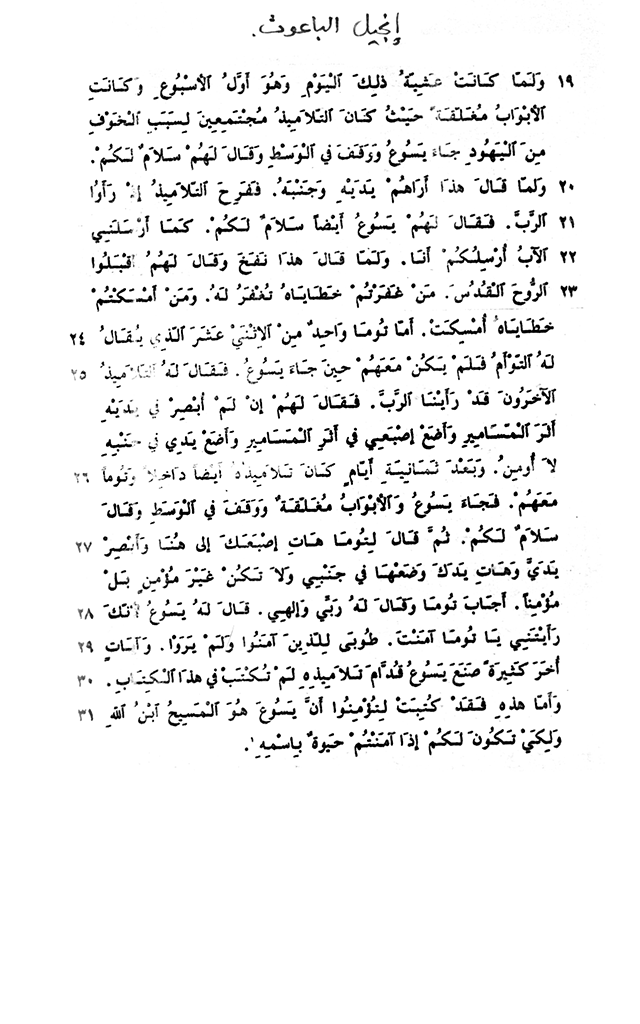 إنجيل الباعوث.
١٩ وَلَمَّا كَانَتْ عَشِيَّةُ ذٰلِكَ ٱلْيَوْمِ وَهُوَ أَوَّلُ ٱلْأُسْبُوعِ وَكَانَتِ
ٱلْأَبْوَابُ مُغَلَّقَةً حَيْثُ كَانَ ٱلتَّلَامِيذُ مُجْتَمِعِينَ لِسَبَبِ ٱلْخَوْفِ
مِنَ ٱلْيَهُودِ جَاءَ يَسُوعُ وَوَقَفَ فِي ٱلْوَسْطِ وَقَالَ لَهُمْ سَلَامٌ لَكُمْ.
٢٠ وَلَمَّا قَالَ هٰذَا أَرَاهُمْ يَدَيْهِ وَجَنْبَهُ. فَفَرِحَ ٱلتَّلَامِيذُ إِذْ رَأَوُا
٢١ ٱلرَّبَّ. فَقَالَ لَهُمْ يَسُوعُ أَيْضاً سَلَامٌ لَكُمْ. كَمَا أَرْسَلَنِي
٢٢ ٱلْآبُ أُرْسِلُكُمْ أَنَا. وَلَمَّا قَالَ هٰذَا نَفَخَ وَقَالَ لَهُمُ ٱقْبَلُوا
٢٣ ٱلرُّوحَ ٱلْقُدُسَ. مَنْ غَفَرْتُمْ خَطَايَاهُ تُغْفَرُ لَهُ. وَمَنْ أَمْسَكْتُمْ
خَطَايَاهُ أُمْسِكَتْ. أَمَّا تُومَا وَاحِدٌ مِنَ ٱلِٱثْنَيْ عَشَرَ ٱلَّذِي يُقَالُ ٢٤
لَهُ ٱلتَّوْأَمُ فَلَمْ يَكُنْ مَعَهُمْ حِينَ جَاءَ يَسُوعُ. فَقَالَ لَهُ ٱلتَّلَامِيذُ ٢٥
ٱلْآخَرُونَ قَدْ رَأَيْنَا ٱلرَّبَّ. فَقَالَ لَهُمْ إِنْ لَمْ أُبْصِرْ فِي يَدَيْهِ
أَثَرَ ٱلْمَسَامِيرِ وَأَضَعْ إِصْبَعِي فِي أَثَرِ ٱلْمَسَامِيرِ وَأَضَعْ يَدِي فِي جَنْبِهِ
لَا أُومِنُ. وَبَعْدَ ثَمَانِيَةِ أَيَّامٍ كَانَ تَلَامِيذُهُ أَيْضاً دَاخِلاً وَتُومَا ٢٦
مَعَهُمْ. فَجَاءَ يَسُوعُ وَٱلْأَبْوَابُ مُغَلَّقَةٌ وَوَقَفَ فِي ٱلْوَسْطِ وَقَالَ
سَلَامٌ لَكُمْ. ثُمَّ قَالَ لِتُومَا هَاتِ إِصْبَعَكَ إِلَى هُنَا وَأَبْصِرْ ٢٧
يَدَيَّ وَهَاتِ يَدَكَ وَضَعْهَا فِي جَنْبِي وَلَا تَكُنْ غَيْرَ مُؤْمِنٍ بَلْ
مُؤْمِناً. أَجَابَ تُومَا وَقَالَ لَهُ رَبِّي وَإِلٰهِي. قَالَ لَهُ يَسُوعُ لِأَنَّكَ ٢٨
رَأَيْتَنِي يَا تُومَا آمَنْتَ. طُوبَى لِلَّذِينَ آمَنُوا وَلَمْ يَرَوْا. وَآيَاتٍ ٢٩
أُخَرَ كَثِيرَةً صَنَعَ يَسُوعُ قُدَّامَ تَلَامِيذِهِ لَمْ تُكْتَبْ فِي هٰذَا ٱلْكِتَابِ. ٣٠
وَأَمَّا هٰذِهِ فَقَدْ كُتِبَتْ لِتُؤْمِنُوا أَنَّ يَسُوعَ هُوَ ٱلْمَسِيحُ ٱبْنُ ٱللهِ ٣١
وَلِكَيْ تَكُونَ لَكُمْ إِذَا آمَنْتُمْ حَيٰوةٌ بِٱسْمِهِ.